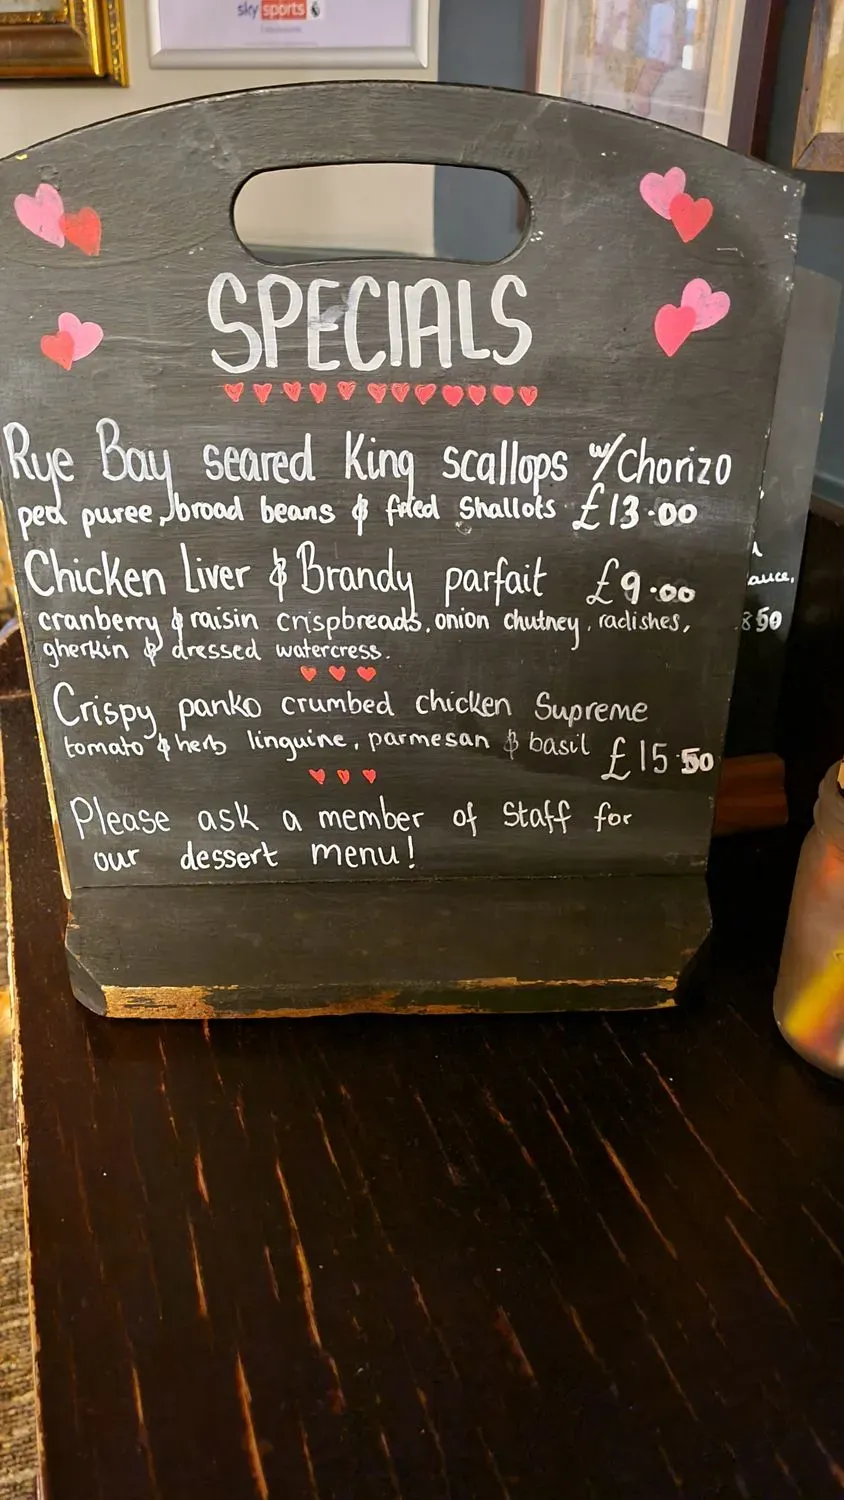 sky sports
SPECIALS
Rye Bay seared King scallops w/Chorizo
pea puree, broad beans & fried Shallots £13.00
Chicken Liver & Brandy parfait £9.00
cranberry & raisin crispbreads, onion chutney, radishes,
gherkin & dressed watercress.
Crispy panko crumbed chicken Supreme
tomato & herb linguine, parmesan & basil £15 50
Please ask a member of Staff for
our dessert menu!
850